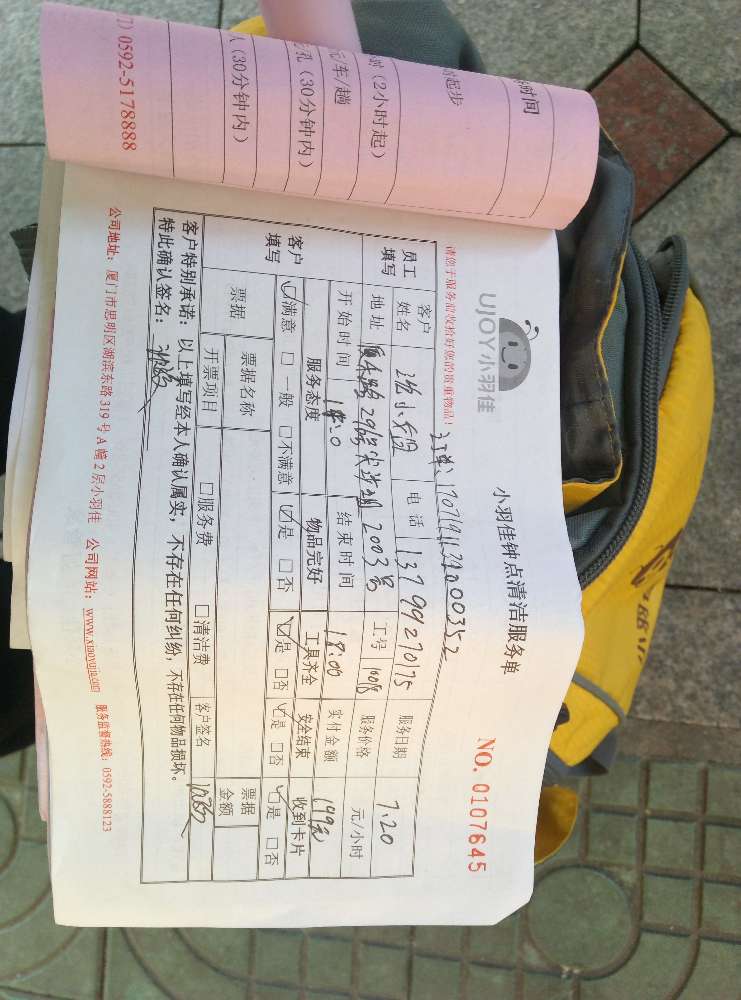 时间
时起步
(2小时起)
元/车/趟
孔(30分钟内)
人(30分钟内)
0592-5178888
UJOY小羽佳
小羽佳钟点清洁服务单
NO. 0107645
请您于服务前收拾好您的贵重物品!
员工填写
客户姓名
电话
13799270175
服务日期
7.20
地址
2003号
工号
服务价格
元/小时
开始时间
结束时间
18:00
实付金额
199元
客户填写
服务态度
物品完好
工具齐全
安全结束
收到卡片
☑满意 □一般 □不满意
☑是 □否
☑是 □否
☑是 □否
☑是 □否
票据
票据名称
票据金额
开票项目
□服务费
□清洁费
客户签名
客户特别承诺:以上填写经本人确认属实,不存在任何纠纷,不存在任何物品损坏。
特此确认签名:
公司地址:厦门市思明区湖滨东路319号A幢2层小羽佳 公司网站:www.xiaoyujia.com 服务监督热线:0592-5888123